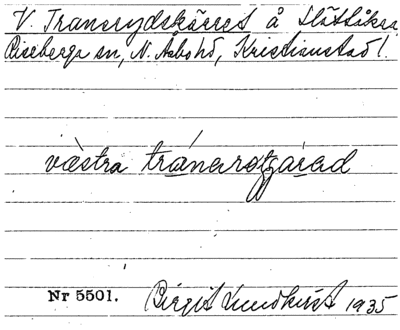 V. Tranerydskärret å Slättåker
Riseberga sn, N. Åsbo hd, Kristianstad l.
västra
Nr 5501. Birgit Lundkvist 1935